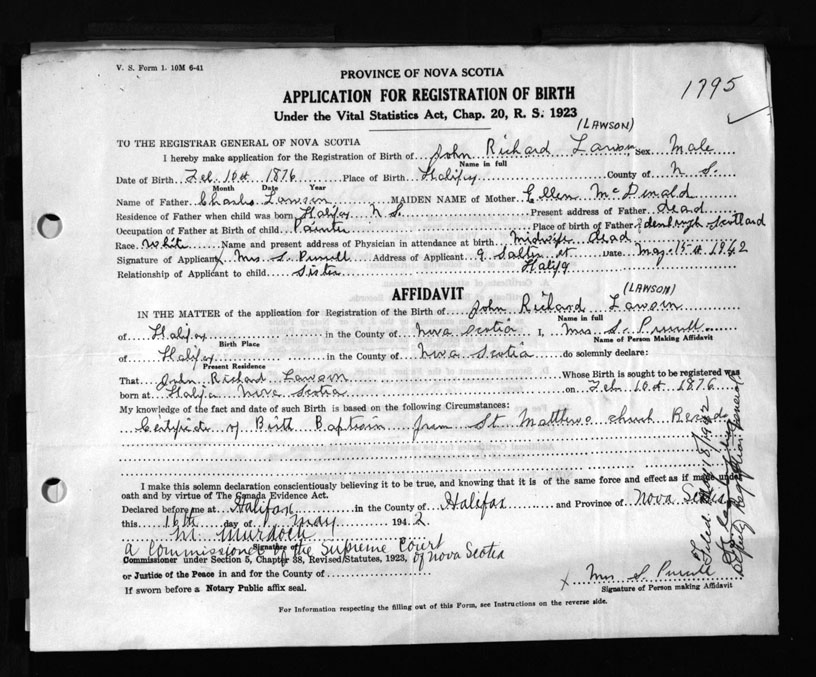 V. S. Form 1. 10M 6-41
1795
PROVINCE OF NOVA SCOTIA
APPLICATION FOR REGISTRATION OF BIRTH
Under the Vital Statistics Act, Chap. 20, R. S. 1923
(LAWSON)
TO THE REGISTRAR GENERAL OF NOVA SCOTIA
I hereby make application for the Registration of Birth of John Richard Lawson Sex Male
Name in full
Date of Birth Feb. 10th 1876 Place of Birth Halifax County of N S.
Month Date Year
Name of Father Charles Lawson MAIDEN NAME of Mother Ellen McDonald
Residence of Father when child was born Halifax N S. Present address of Father dead
Occupation of Father at Birth of child Painter Place of birth of Father Edenburgh Scotland
Race White Name and present address of Physician in attendance at birth Midwife dead
Signature of Applicant x Mrs S. Purcell Address of Applicant 9 Salter st Date May 15th 1942
Halifax
Relationship of Applicant to child Sister
AFFIDAVIT
(LAWSON)
IN THE MATTER of the application for Registration of the Birth of John Richard Lawson
Name in full
of Halifax in the County of Nova Scotia I, Mrs S. Purcell
Birth Place Name of Person Making Affidavit
of Halifax in the County of Nova Scotia do solemnly declare:
Present Residence
That John Richard Lawson Whose Birth is sought to be registered was
born at Halifax Nova Scotia on Feb 10th 1876
My knowledge of the fact and date of such Birth is based on the following Circumstances:
Certificate of Birth Baptism from St. Matthews church Records
I make this solemn declaration conscientiously believing it to be true, and knowing that it is of the same force and effect as if made under
oath and by virtue of The Canada Evidence Act.
Declared before me at Halifax in the County of Halifax and Province of Nova Scotia
this 16th day of May 1942
M. Murdoch
Signature of
A Commissioner of the Supreme Court
of Nova Scotia
Commissioner under Section 5, Chapter 38, Revised Statutes, 1923,
or Justice of the Peace in and for the County of
If sworn before a Notary Public affix seal.
x Mrs S Purcell
Signature of Person making Affidavit
For Information respecting the filling out of this Form, see Instructions on the reverse side.
Filed May 18/1942
Deputy Registrar General.